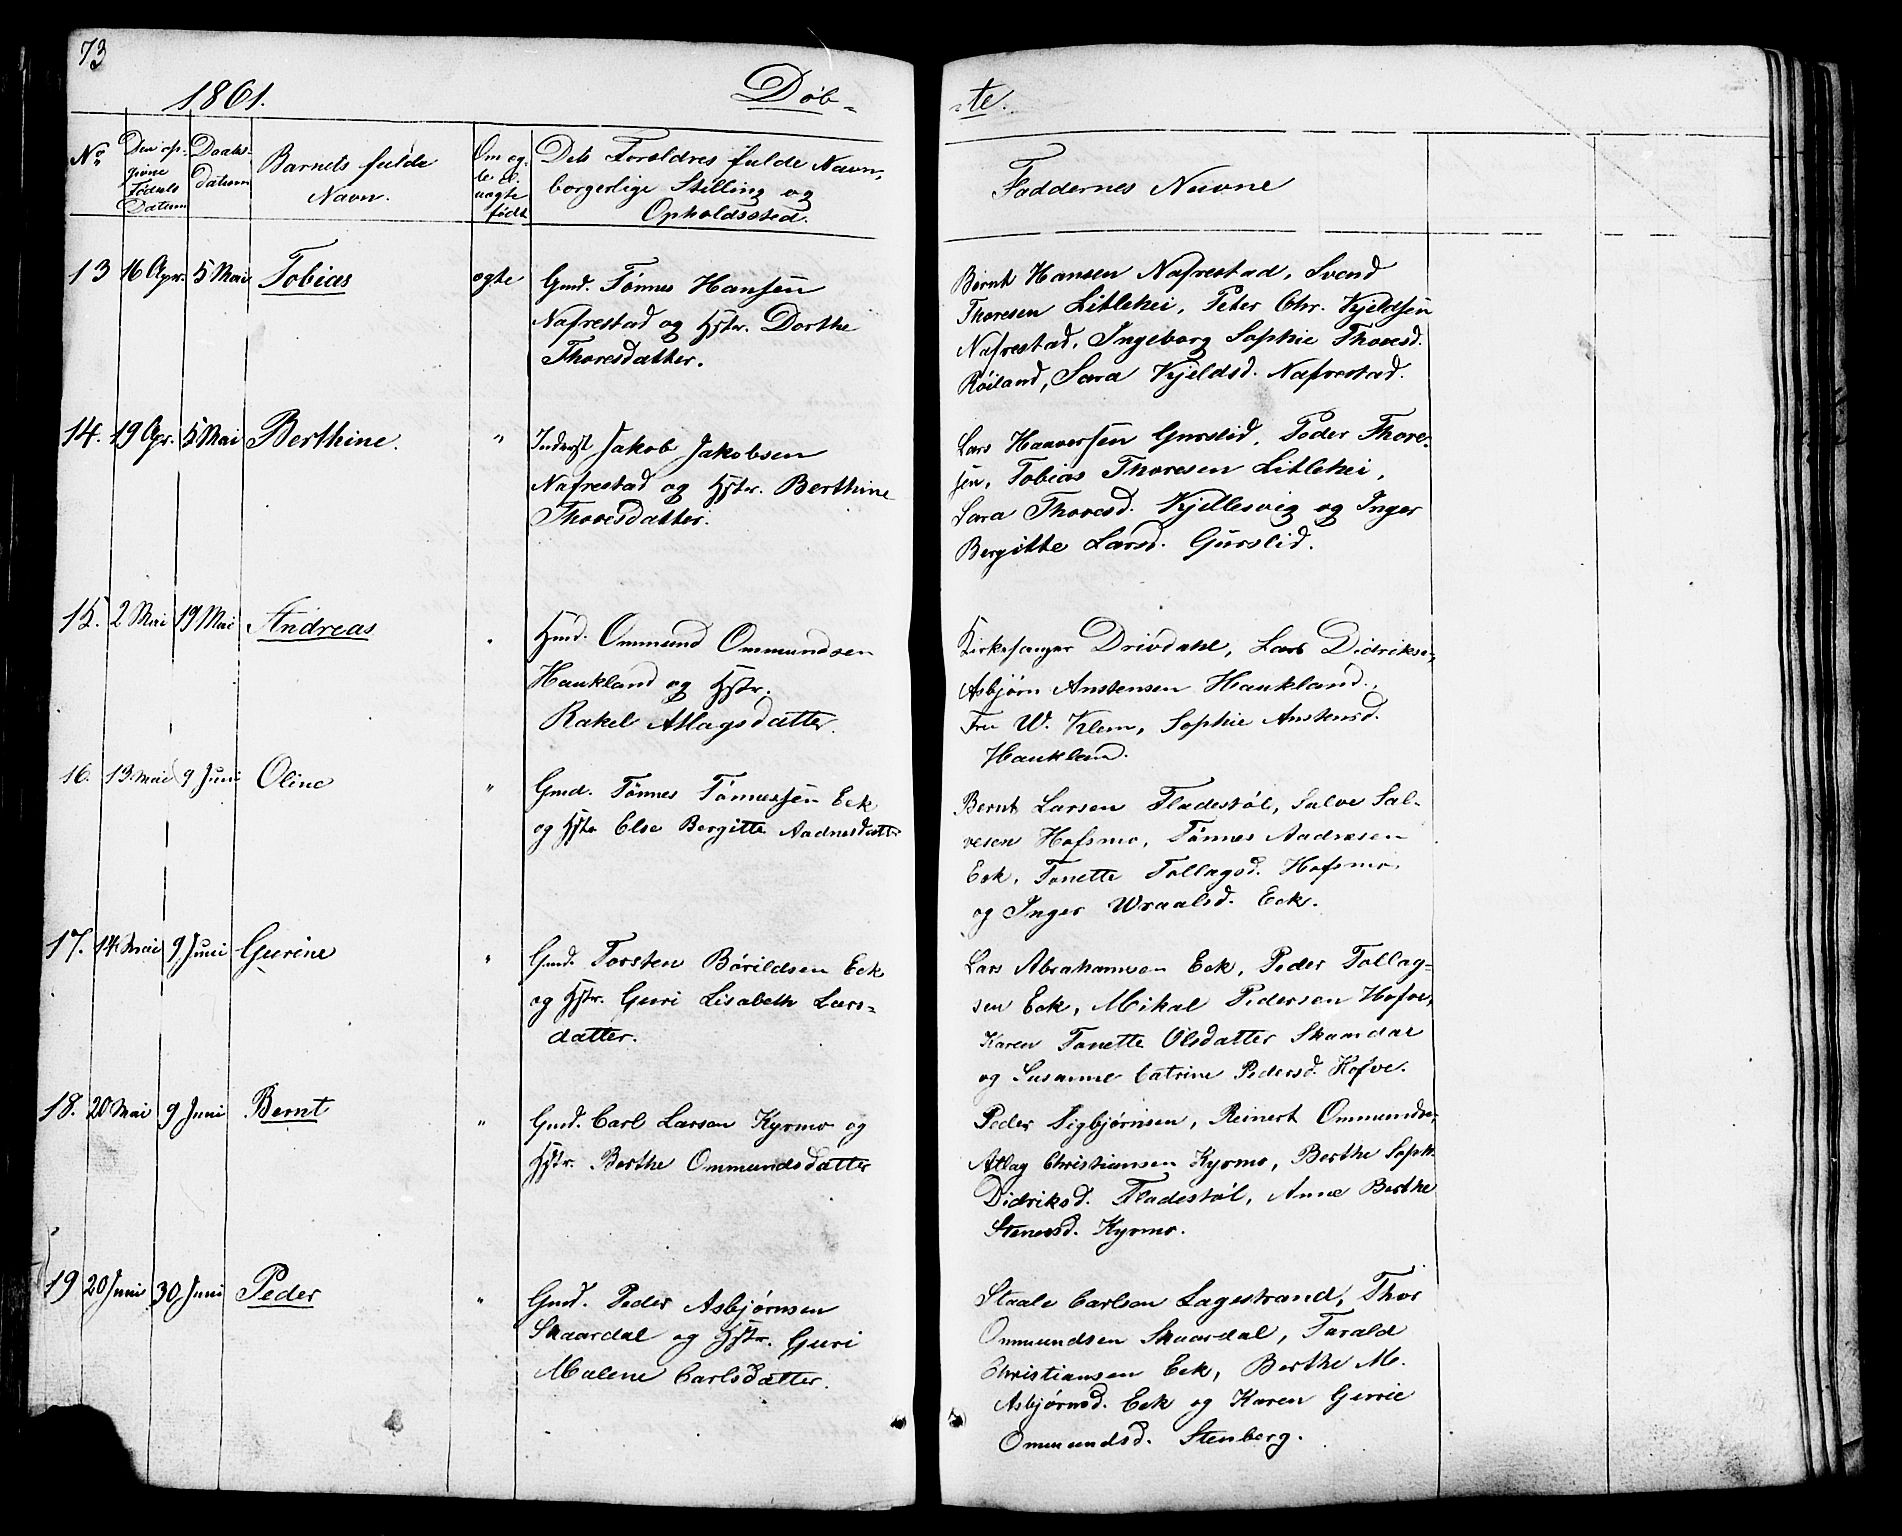 73
1861.
Døb-
-te.
No
Den op-
givne
Fødsels
Datum
Daabs-
datum
Barnets fulde
Navn.
Om æg-
te el.
uægte
født
Dets Forældres fulde Navn,
borgerlige Stilling og
Opholdssted.
Faddernes Navne
13 16 Apr. 5 Mai Tobias ægte Gmd. Tønnes Hansen
Nafrestad og Hstr. Dorthe
Thoresdatter.
Bernt Hansen Nafrestad, Svend
Thoresen Litlehei, Peter Chr. Kjeldsen
Nafrestad, Ingeborg Sophie Thoresd.
Røiland, Sara Kjeldsd. Nafrestad.
14. 19 Apr. 5 Mai Berthine. " Inderst Jakob Jakobsen
Nafrestad og Hstr. Berthine
Thoresdatter.
Lars Haaversen Gurslid, Peder Thore-
sen, Tobias Thoresen Litlehei,
Sara Thoresd. Kjellesvig og Inger
Bergitte Larsd. Gurslid.
15. 2 Mai 19 Mai Andreas " Hmd. Ommund Ommundsen
Haukland og Hstr.
Rakel Atlagsdatter.
Kirkesanger Drivdahl, Lars Didriksen,
Asbjørn Anstensen Haukland,
Fru W. Klem, Sophie Anstensd.
Hauklan.
16. 13 Mai 9 Juni Oline " Gmd. Tønnes Tønnessen Eek
og Hstr Else Bergitte Aadnesdatter
Bernt Larsen Fladestøl, Salve Sal-
vesen Hofsmo, Tønnes Aadnesen
Eek, Tonette Tollagsd. Hofsmo,
og Inger Wraalsd. Eek.
17. 14 Mai 9 Juni Gurine " Gmd. Torsten Børildsen Eek
og Hstr. Guri Lisabeth Lars-
datter.
Lars Abrahamsen Eek, Peder Tollag-
sen Eek, Mikal Pedersen Hofve,
Karen Tonette Olsdatter Skaardal
og Susanne Catrine Pedersd. Hofve.
18. 20 Mai 9 Juni Bernt " Gmd. Carl Larsen Kyrmo og
Hstr. Berthe Ommundsdatter
Peder Sigbjørnsen, Reinert Ommundsen,
Atlag Christiansen Kyrmo, Berthe Soph.
Didriksd. Fladestøl, Anne Berthe
Stenersd. Kyrmo.
19 20 Juni 30 Juni Peder " Gmd. Peder Asbjørnsen
Skaardal og Hstr. Guri
Malene Carlsdatter.
Staale Carlsen Lagestrand, Thor
Ommundsen Skaardal, Tarald
Christiansen Eek, Berthe M.
Asbjørnsd. Eek og Karen Gurie
Ommundsd. Stenberg.